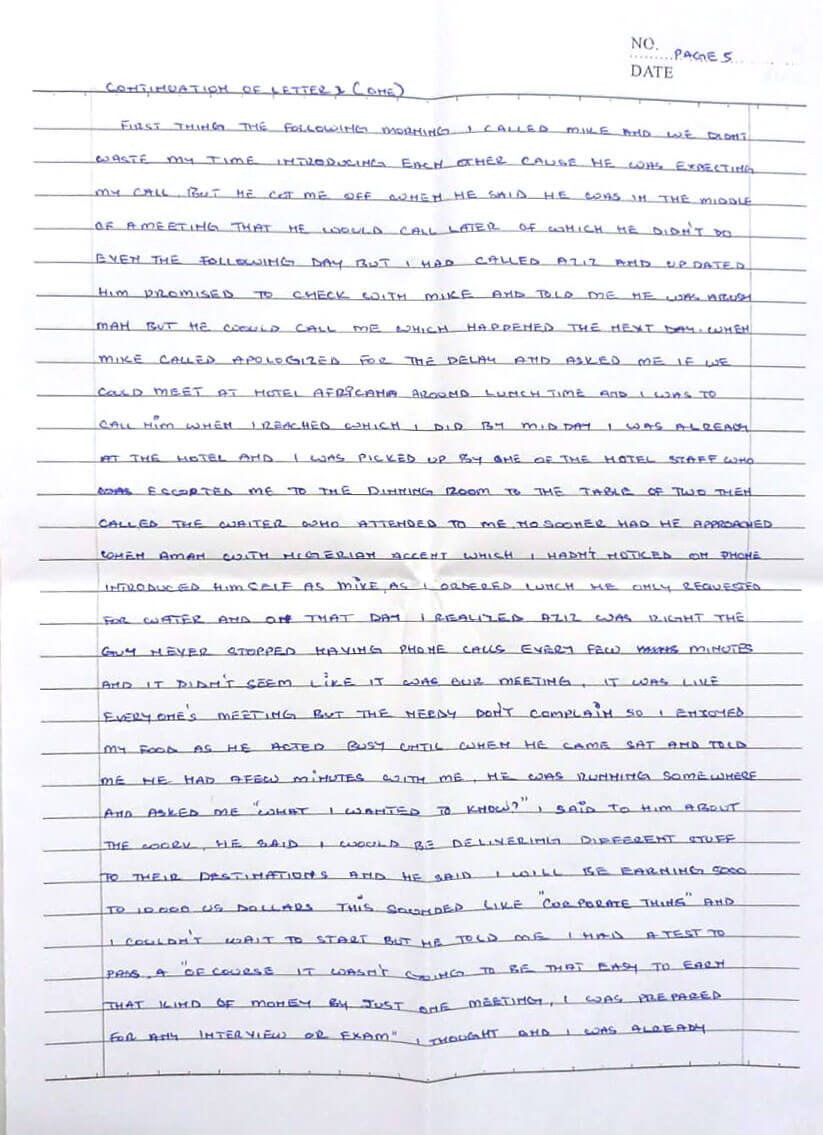 NO. PAGE 5
DATE
CONTINUATION OF LETTER 1 (ONE)
FIRST THING THE FOLLOWING MORNING I CALLED MIKE AND WE DIDN'T
WASTE MY TIME INTRODUCING EACH OTHER CAUSE HE WAS EXPECTING
MY CALL, BUT HE CUT ME OFF WHEN HE SAID HE WAS IN THE MIDDLE
OF A MEETING THAT HE WOULD CALL LATER OF WHICH HE DIDN'T DO
EVEN THE FOLLOWING DAY BUT I HAD CALLED AZIZ AND UPDATED
HIM PROMISED TO CHECK WITH MIKE AND TOLD ME HE WAS ABUSY
MAN BUT HE WOULD CALL ME WHICH HAPPENED THE NEXT DAY. WHEN
MIKE CALLED APOLOGIZED FOR THE DELAY AND ASKED ME IF WE
COULD MEET AT HOTEL AFRICANA AROUND LUNCH TIME AND I WAS TO
CALL HIM WHEN I REACHED WHICH I DID BY MID DAY I WAS ALREADY
AT THE HOTEL AND I WAS PICKED UP BY ONE OF THE HOTEL STAFF WHO
ESCORTED ME TO THE DINNING ROOM TO THE TABLE OF TWO THEN
CALLED THE WAITER WHO ATTENDED TO ME. NO SOONER HAD HE APPROACHED
WHEN AMAN WITH NIGERIAN ACCENT WHICH I HADN'T NOTICED ON PHONE
INTRODUCED HIMSELF AS MIKE, AS I ORDERED LUNCH HE ONLY REQUESTED
FOR WATER AND ON THAT DAY I REALIZED AZIZ WAS RIGHT THE
GUY NEVER STOPPED HAVING PHONE CALLS EVERY FEW MINUTES
AND IT DIDN'T SEEM LIKE IT WAS OUR MEETING, IT WAS LIKE
EVERYONE'S MEETING BUT THE NEEDY DON'T COMPLAIN SO I ENJOYED
MY FOOD AS HE ACTED BUSY UNTIL WHEN HE CAME SAT AND TOLD
ME HE HAD AFEW MINUTES WITH ME, HE WAS RUNNING SOMEWHERE
AND ASKED ME "WHAT I WANTED TO KNOW?" I SAID TO HIM ABOUT
THE WORK, HE SAID I WOULD BE DELIVERING DIFFERENT STUFF
TO THEIR DESTINATIONS AND HE SAID I WILL BE EARNING 5000
TO 10.000 US DOLLARS THIS SOUNDED LIKE "CORPORATE THING" AND
I COULDN'T WAIT TO START BUT HE TOLD ME I HAD A TEST TO
PASS, A "OF COURSE IT WASN'T GOING TO BE THAT EASY TO EARN
THAT KIND OF MONEY BY JUST ONE MEETING, I WAS PREPARED
FOR ANY INTERVIEW OR EXAM" I THOUGHT AND I WAS ALREADY